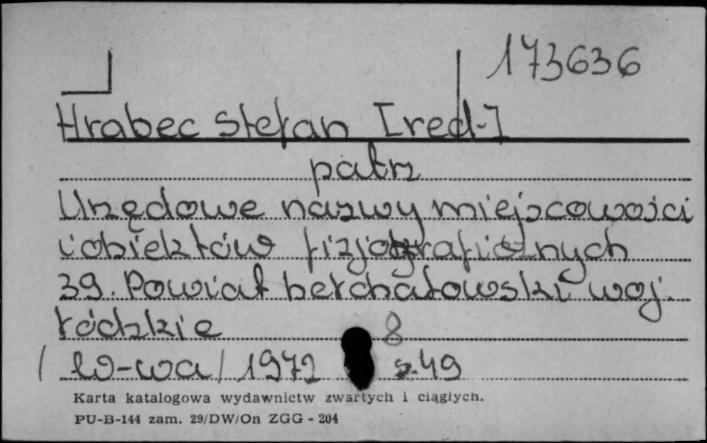 173636
Hrabec Stefan [red.]
patrz
Urzędowe nazwy miejscowości
i obiektów fizjograficznych
39. Powiat bełchatowski woj.
łódzkie 8
/W-wa/ 1972 s. 49
Karta katalogowa wydawnictw zwartych i ciągłych.
PU-B-144 zam. 29/DW/On ZGG - 204